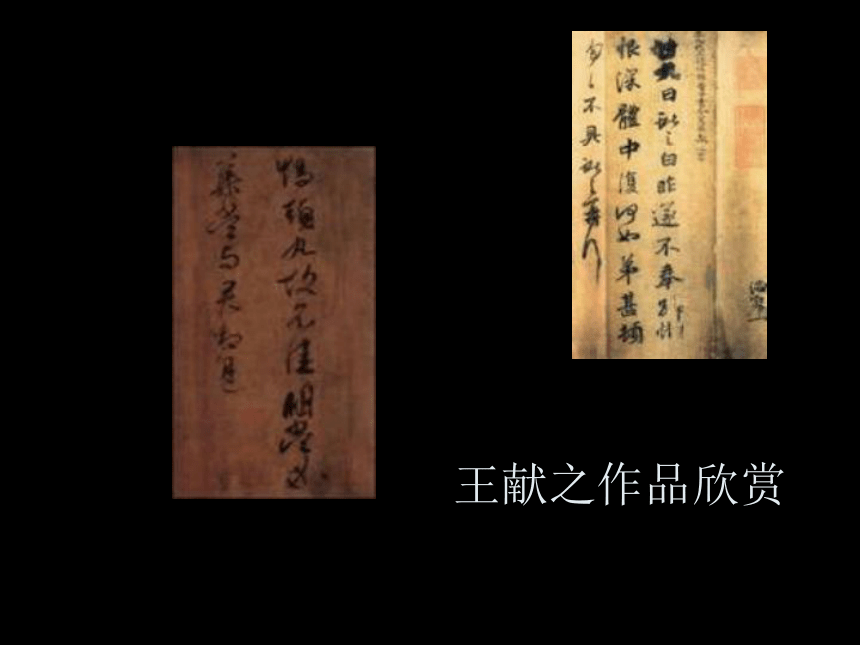 廿九日獻之白昨遂不奉別悵
恨深體中復何如弟甚頓
匆匆不具獻之再拜
鴨頭丸故不佳明當必
集當與君相見
王献之作品欣赏